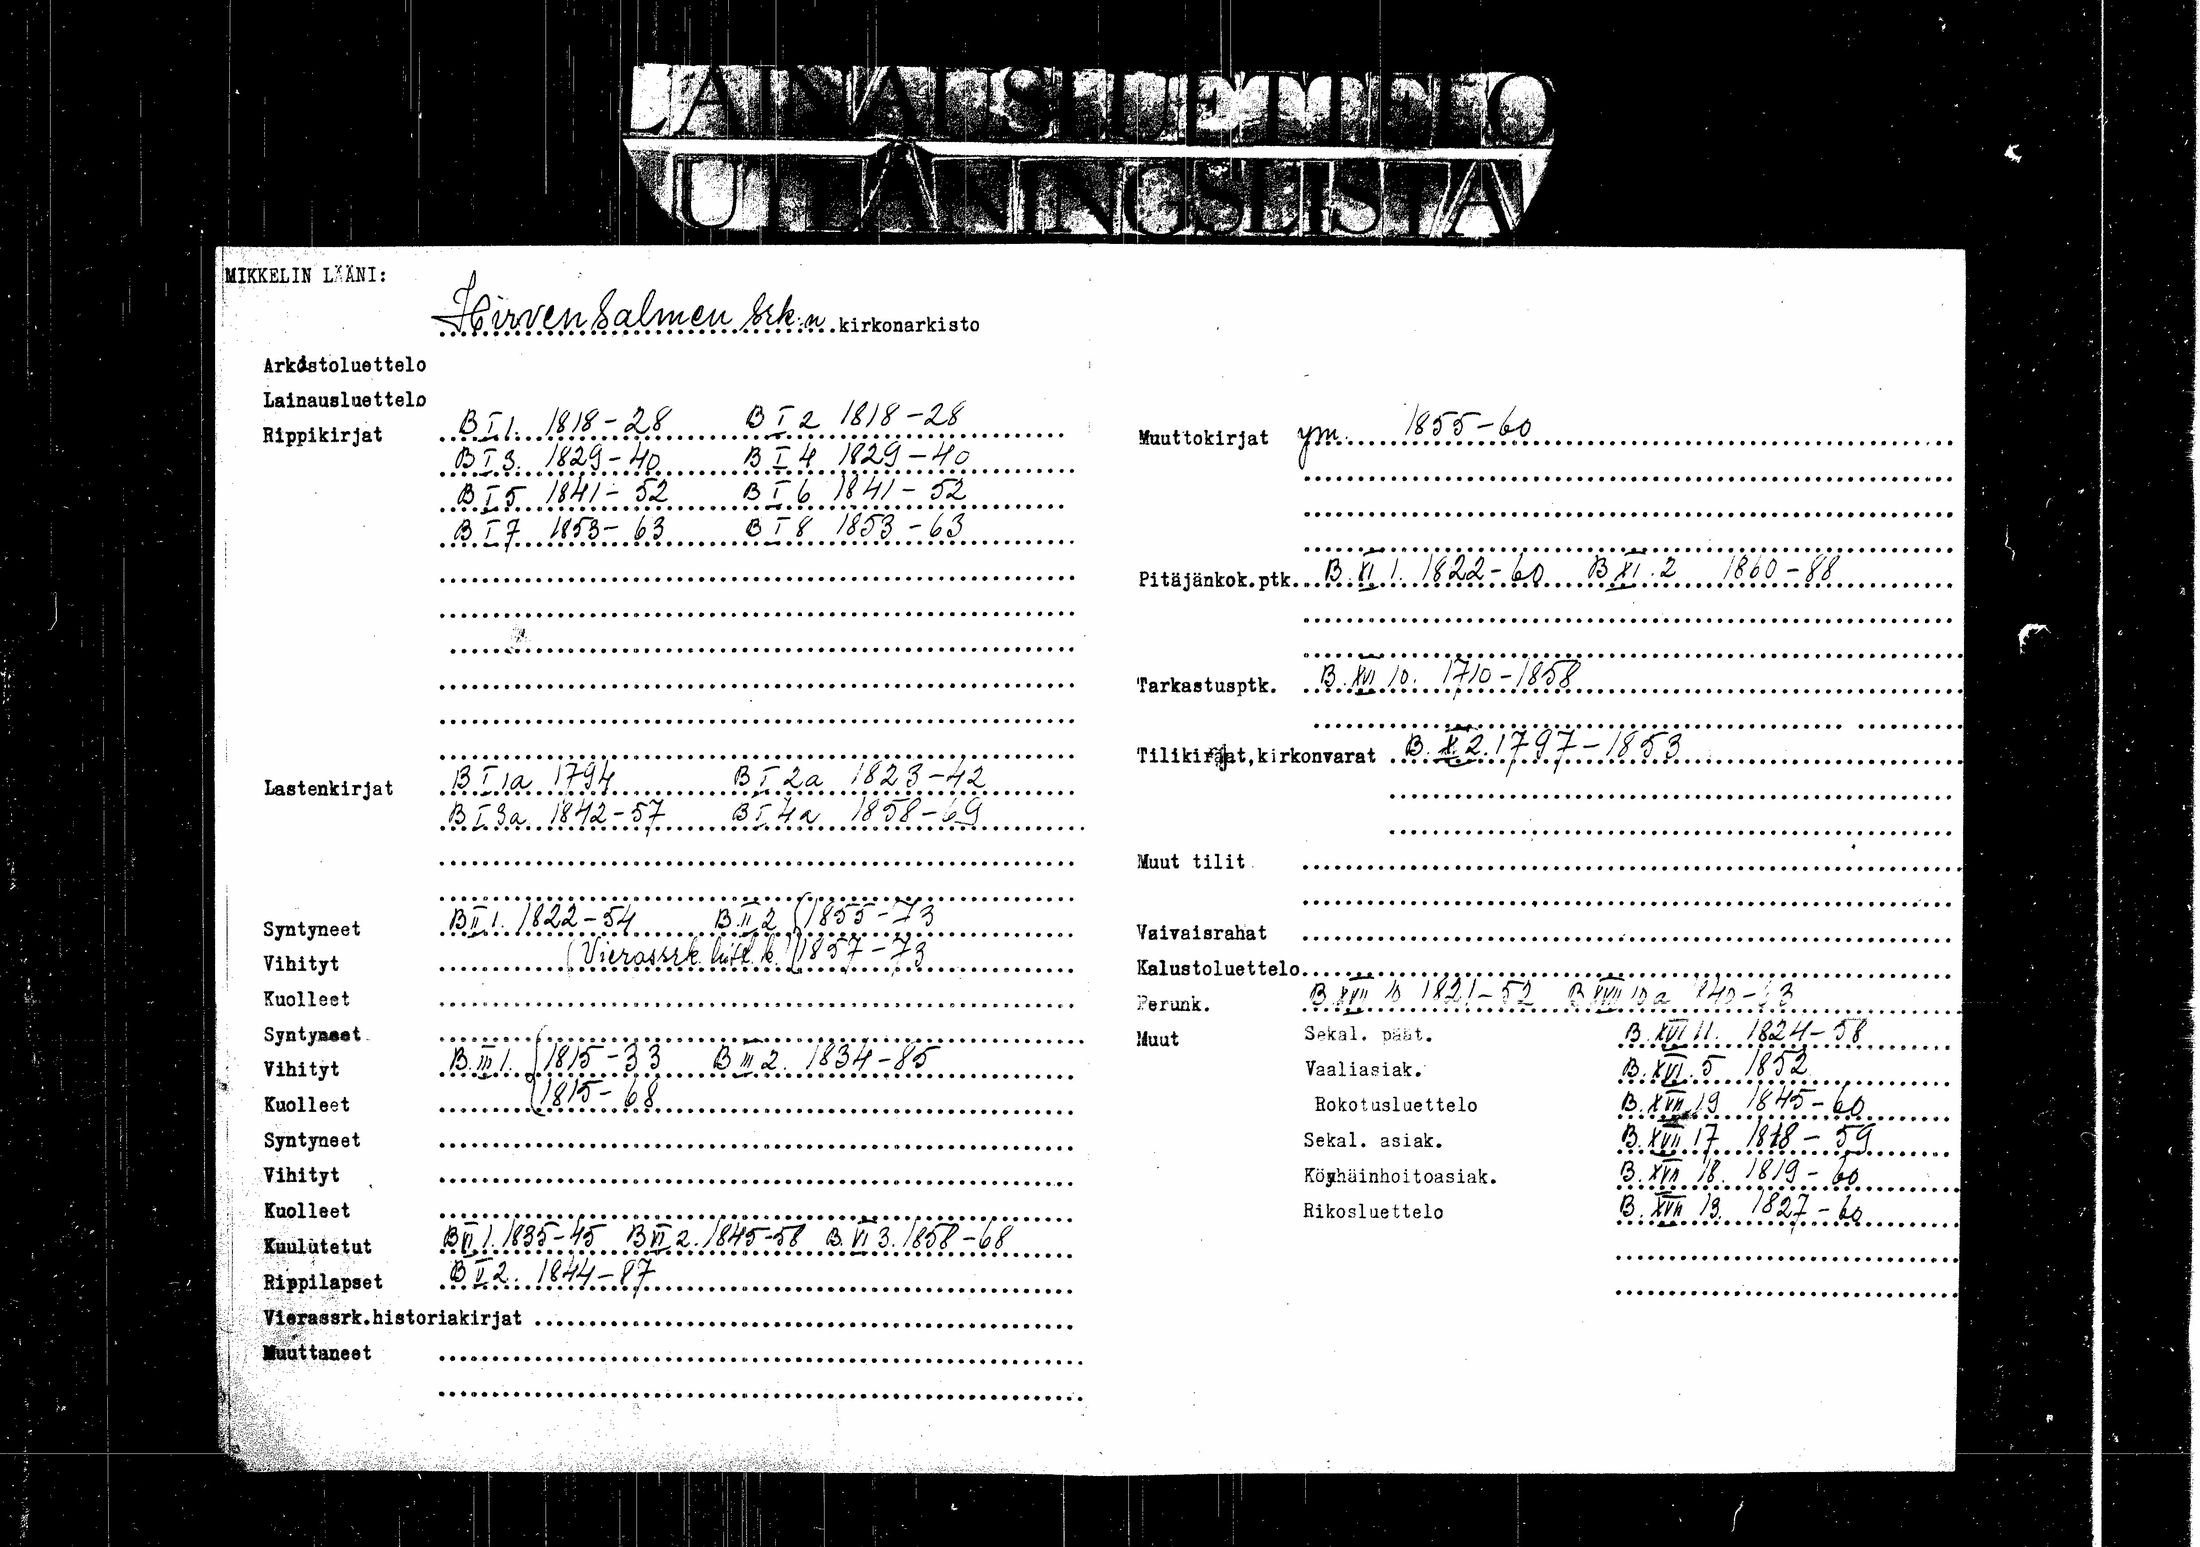 LAINAUSLUETTELO
UTLÅNINGSLISTA
MIKKELIN LÄÄNI:
Hirvensalmen srk:n kirkonarkisto
Arkistoluettelo
Lainausluettelo
Rippikirjat B I 1. 1818-28 B I 2 1818-28
B I 3. 1829-40 B I 4 1829-40
B I 5 1841-52 B I 6 1841-52
B I 7 1853-63 B I 8 1853-63
Lastenkirjat B I 1a 1794 B I 2a 1823-42
B I 3a 1842-57 B I 4a 1858-69
Syntyneet B II 1. 1822-54 B II 2 (1855-73
Vihityt (Vierassrk. hist.k.) (1857-73
Kuolleet
Syntyneet
Vihityt B. III 1. (1815-33 B III 2. 1834-85
Kuolleet (1815-68
Syntyneet
Vihityt
Kuolleet
Kuulutetut B VI 1. 1835-45 B VI 2. 1845-58 B. VI 3. 1858-68
Rippilapset B V 2. 1844-87
Vierassrk.historiakirjat
Muuttaneet
Muuttokirjat ym. 1855-60
Pitäjänkok.ptk. B. XI 1. 1822-60 B XI. 2 1860-88
Tarkastusptk. B. XVI 10. 1710-1858
Tilikirjat,kirkonvarat B. X 2. 1797-1853
Muut tilit
Vaivaisrahat
Kalustoluettelo
Perunk. B XVII 10 1821-52 B XVII 10a 1840-63
Muut Sekal. päät. B. XVI 11. 1824-58
Vaaliasiak. B. XVI. 5 1852
Rokotusluettelo B. XVII 19 1845-60
Sekal. asiak. B. XVII 17 1818-59
Köyhäinhoitoasiak. B. XVII 18. 1819-60
Rikosluettelo B. XVII 13. 1827-60